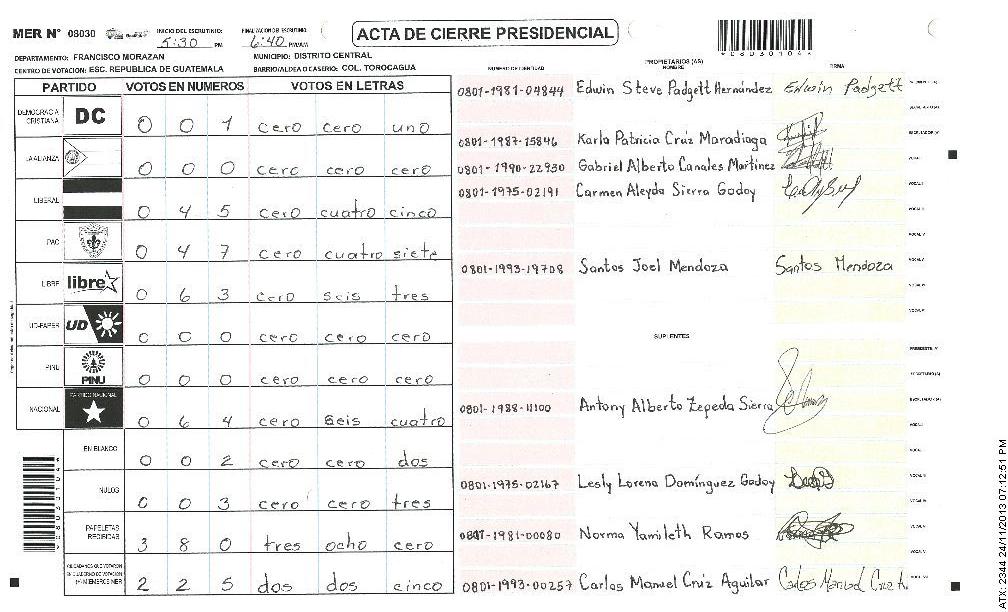 MER N° 08030
INICIO DEL ESCRUTINIO: 5:30 PM
FINALIZACION DE ESCRUTINIO: 6:40 PM/AM
ACTA DE CIERRE PRESIDENCIAL
DEPARTAMENTO: FRANCISCO MORAZAN
MUNICIPIO: DISTRITO CENTRAL
CENTRO DE VOTACION: ESC. REPUBLICA DE GUATEMALA
BARRIO/ALDEA O CASERIO: COL. TOROCAGUA
PARTIDO VOTOS EN NUMEROS VOTOS EN LETRAS
DEMOCRACIA CRISTIANA DC 0 0 1 cero cero uno
LA ALIANZA 0 0 0 cero cero cero
LIBERAL 0 4 5 cero cuatro cinco
PAC 0 4 7 cero cuatro siete
LIBRE libre 0 6 3 cero seis tres
UD-FAPER UD 0 0 0 cero cero cero
PINU PINU 0 0 0 cero cero cero
NACIONAL PARTIDO NACIONAL 0 6 4 cero seis cuatro
EN BLANCO 0 0 2 cero cero dos
NULOS 0 0 3 cero cero tres
PAPELETAS RECIBIDAS 3 8 0 tres ocho cero
CIUDADANOS QUE VOTARON EN CUADERNO DE VOTACION (+) MIEMBROS MER 2 2 5 dos dos cinco
NUMERO DE IDENTIDAD PROPIETARIOS (AS) NOMBRE FIRMA
0801-1981-04844 Edwin Steve Padgett Hernández Edwin Padgett
0801-1987-15846 Karla Patricia Cruz Maradiaga
0801-1990-22930 Gabriel Alberto Canales Martinez
0801-1975-02191 Carmen Aleyda Sierra Godoy
0801-1993-19708 Santos Joel Mendoza Santos Mendoza
SUPLENTES
0801-1988-11100 Antony Alberto Zepeda Sierra
0801-1975-02167 Lesly Lorena Domínguez Godoy
-1981-00080 Norma Yamileth Ramos
0801-1993-00257 Carlos Manuel Cruz Aguilar
ATX: 2344 24/11/2013 07:12:51 PM